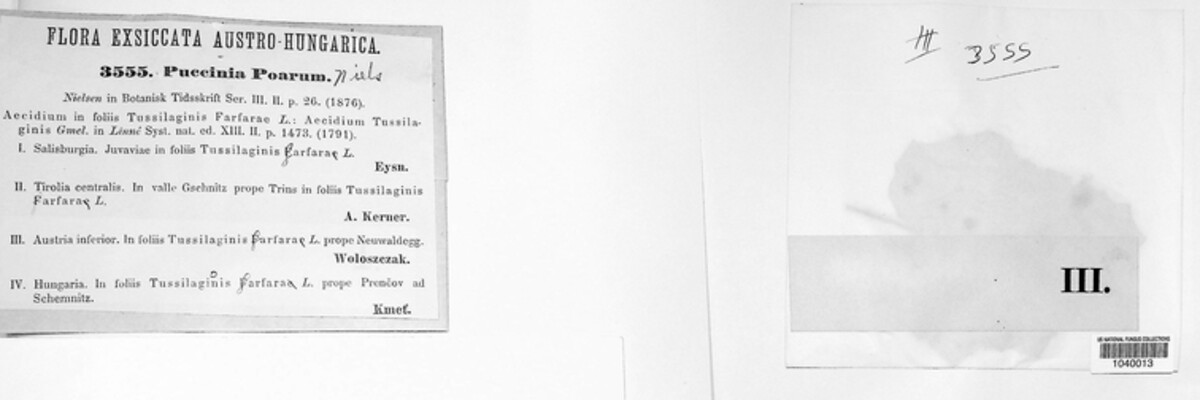 FLORA EXSICCATA AUSTRO-HUNGARICA.
3555. Puccinia Poarum. Niels
Nielsen in Botanisk Tidsskrift Ser. III. II. p. 26. (1876).
Aecidium in foliis Tussilaginis Farfarae L.: Aecidium Tussila-
ginis Gmel. in Linné Syst. nat. ed. XIII. II. p. 1473. (1791).
I. Salisburgia. Juvaviae in foliis Tussilaginis farfarae L.
Eysn.
II. Tirolia centralis. In valle Gschnitz prope Trins in foliis Tussilaginis
Farfarae L.
A. Kerner.
III. Austria inferior. In foliis Tussilaginis farfarae L. prope Neuwaldegg.
Woloszczak.
IV. Hungaria. In foliis Tussilaginis farfarae L. prope Prenčov ad
Schemnitz.
Kmeť.
III 3555
III.
US NATIONAL FUNGUS COLLECTIONS
1040013